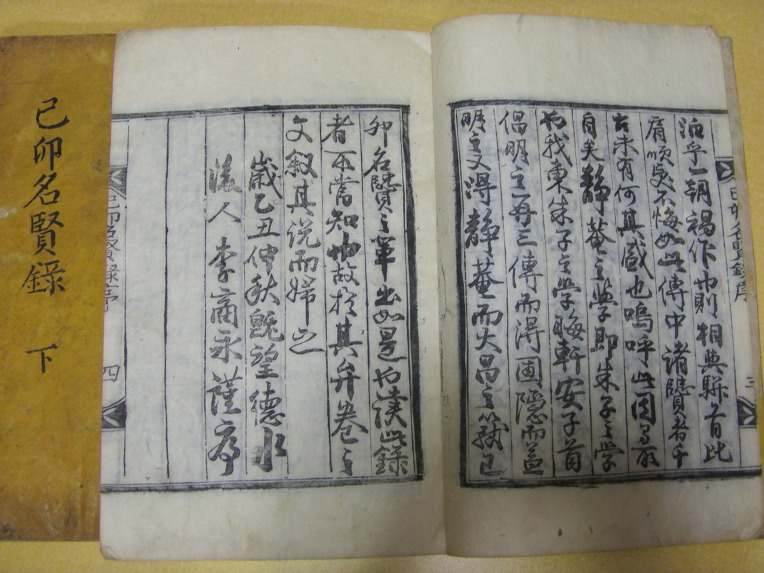 己卯名賢錄序 三
洎乎一朝禍作也則相與騈首比
肩順受不悔如此傳中諸賢者千
古未有何其盛也嗚呼此固有所
自矣靜菴之學即朱子之學
也我東朱子之學晦軒安子首
倡明之再三傳而得圃隱而益
明之又得靜菴而大昌之茲己
卯名賢之輩出如是也讀此錄
者不當知也故於其弁卷之
文叙其說而歸之
歲乙丑仲秋旣望德水
後人李商永謹序
己卯名賢錄序 四
己卯名賢錄 下